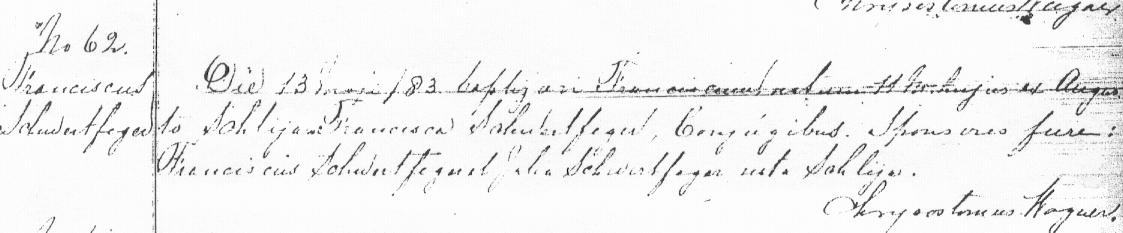 Chrysostomus Wagner
No 62.
Franciscus
Schwertfeger
Die 13 Maii /83 baptizavi Franciscum natum 11 hujus ex Augus
to Schlijer Francisca Schwertfeger, Conjugibus. Sponsores fure:
Franciscus Schwertfeger et Julia Schwertfeger nata Schlijer.
Chrysostomus Wagner.